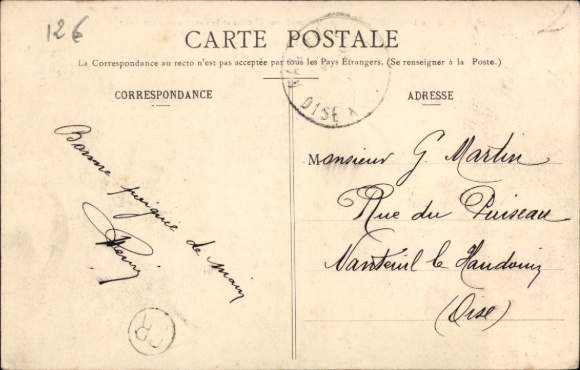 12€
CARTE POSTALE
La Correspondance au recto n'est pas acceptée par tous les Pays Étrangers. (Se renseigner à la Poste.)
CORRESPONDANCE
Bonne poignée de main
ADRESSE
Monsieur G. Martin
Rue du Puiseau
Nanteuil le Haudouin
(Oise)
OISE
CR